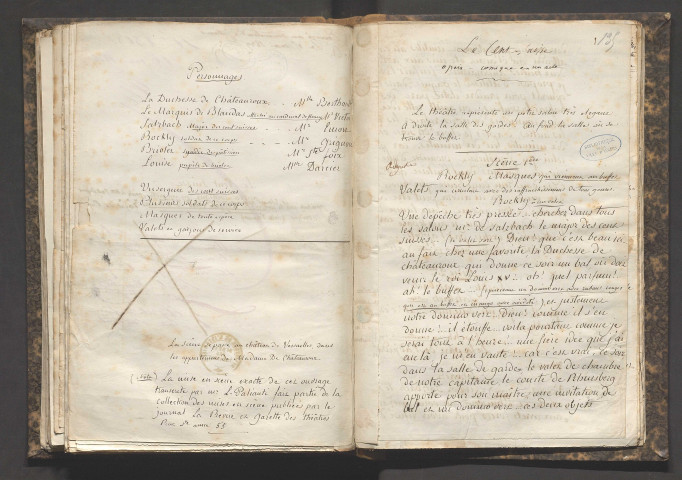 Personnages
La Duchesse de Châteauroux . Mlle Berthault
Le Marquis de Blandas
Salzbach Major des cent suisses . Mr
Rockly soldat de ce corps . . Mr
Butler Mr Ste Foix
Louise pupille de Butler Mme Darcier
Un sergent des cent suisses
Plusieurs soldats de ce corps
Masques de toute espèce
Valets en garçons de service
La scène se passe au château de Versailles, dans
les appartements de Madame de Châteauroux
(note) La mise en scène exacte de cet ouvrage
transcrite par mr L. Palianti fait partie de la
collection des mises en scène publiées par le
journal La Revue et Gazette des théâtres
Rue Ste anne 55
135
Le Cent-Suisse
opéra-comique en un acte
Le théâtre représente un petit salon très élégant
à droite la salle des gardes. au fond la salle où se
trouve le buffet
Scène 1ère
Rockly Masques qui viennent au buffet
Valets qui circulent avec des rafraichissements de tous genres
Rockly
Une dépêche très pressée .. chercher dans tous
les salons mr de Salzbach le major des cent
suisses. Dieu! que c'est beau ici
au fait chez une favorite la Duchesse de
châteauroux qui donne ce soir un bal où doit
venir le roi Louis XV!.. oh! quel parfum!
ah! le buffet
que est au buffet et mange avec avidité) et justement
notre domino vert. Dieu! comme il s'en
donne! il étouffe .. voilà pourtant comme je
serai tout à l'heure!.. une fière idée que j'ai
eue là je m'en vante!.. car c'est vrai, ce soir
dans la salle de garde le valet de chambre
de notre capitaine le comte de Rhinsberg
apporte pour son maître, une invitation de
bal et un domino vert.. ces deux objets